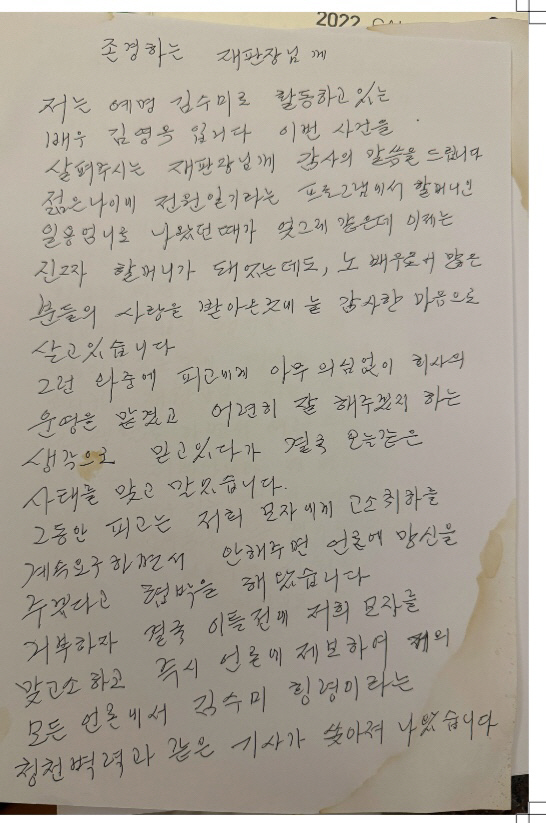 2022
존경하는 재판장님께
저는 예명 김수미로 활동하고 있는
배우 김영옥 입니다 이번 사건을
살펴주시는 재판장님께 감사의 말씀을 드립니다
젊은나이에 전원일기라는 프로그램에서 할머니인
일용엄니로 나왔던때가 엊그제 같은데 이제는
진짜 할머니가 돼었는데도, 노 배우로서 많은
분들의 사랑을 받아온것에 늘 감사한 마음으로
살고있습니다
그런 와중에 피고에게 아무 의심없이 회사의
운영을 맡겼고 어련히 잘 해주겠지 하는
생각으로 믿고있다가 결국 오늘같은
사태를 맞고 말았습니다.
그동안 피고는 저희 모자에게 고소취하를
계속요구하면서 안해주면 언론에 망신을
주겠다고 협박을 해 왔습니다
거부하자 결국 이틀전에 저희 모자를
맞고소 하고 즉시 언론에 제보하여
모든 언론에서 김수미 횡령이라는
청천벽력과 같은 기사가 쏟아져 나왔습니다